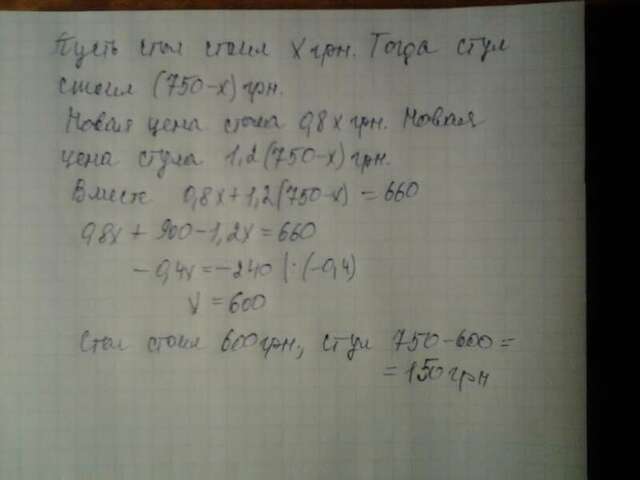 Пусть стол стоил x грн. Тогда стул
стоил (750-x) грн.
Новая цена стола 0,8x грн. Новая
цена стула 1,2(750-x) грн.
Вместе 0,8x+1,2(750-x) = 660
0,8x + 900-1,2x=660
-0,4x=-240 |:(-0,4)
x=600
Стол стоил 600 грн, стул 750-600=
=150 грн